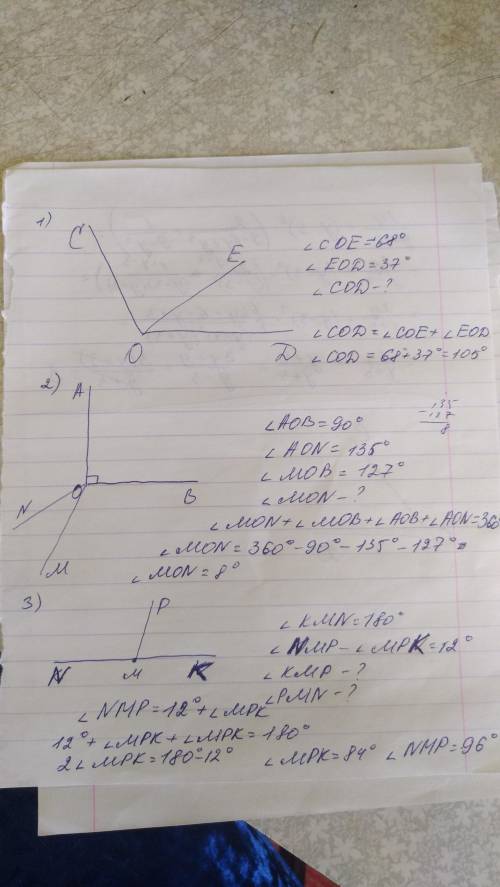 1)
C
E
O
D
∠COE=68°
∠EOD=37°
∠COD-?
∠COD=∠COE+∠EOD
∠COD=68°+37°=105°
2)
A
N
O
B
M
135
-127
8
∠AOB=90°
∠AON=135°
∠MOB=127°
∠MON-?
∠MON+∠MOB+∠AOB+∠AON=360
∠MON=360°-90°-135°-127°=
∠MON=8°
3)
P
N
M
K
∠KMN=180°
∠NMP-∠MPK=12°
∠KMP-?
∠PMN-?
∠NMP=12°+∠MPK
12°+∠MPK+∠MPK=180°
2∠MPK=180°-12°
∠MPK=84° ∠NMP=96°